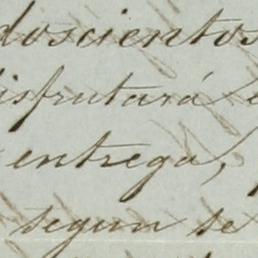 doscientos
disfrutará
entrega,
segun se